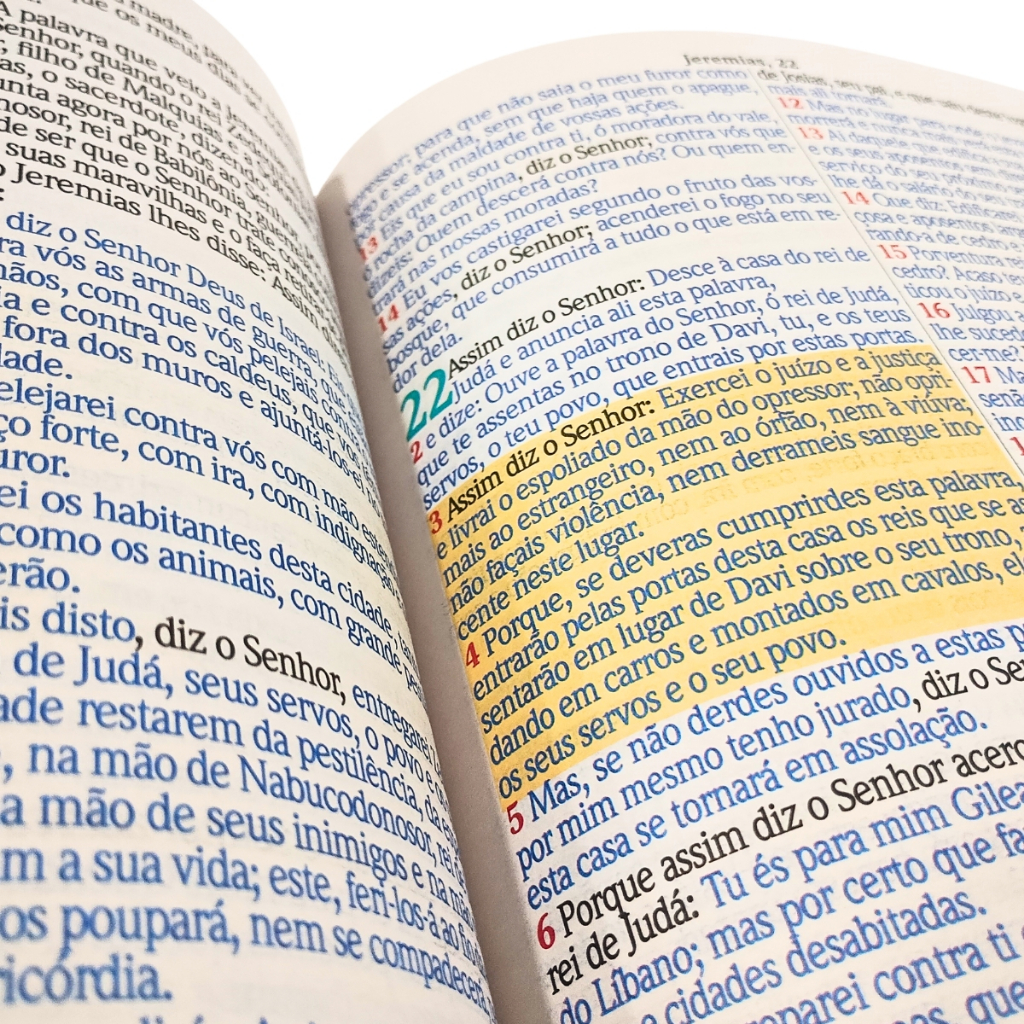 madre,
que os meus dias
A palavra que veio a Jeremias
Senhor, quando o rei Zedequias
filho de Malquias, e a
as, o sacerdote, dizendo:
unta agora por nós ao Senhor,
nosor, rei de Babilônia, guerreia
de ser que o Senhor trate conosco
suas maravilhas e o faça retirar
o Jeremias lhes disse: Assim
:
diz o Senhor Deus de Israel: Eis
ra vós as armas de guerra, que
mãos, com que vós pelejais contra
ia e contra os caldeus, que vos
fora dos muros e ajuntá-los-ei no
dade.
elejarei contra vós com mão esten
ço forte, com ira, com indignação
uror.
ei os habitantes desta cidade,
como os animais, com grande pes
erão.
is disto, diz o Senhor, entregarei
de Judá, seus servos, o povo e
ade restarem da pestilência, da
, na mão de Nabucodonosor, rei de
a mão de seus inimigos e na mão
m a sua vida; este, feri-los-á ao fio
os poupará, nem se compadecerá
ricórdia.
Jeremias, 22
pressor; para que não saia o meu furor como
e se acenda, sem que haja quem o apague,
causa da maldade de vossas ações.
13 Eis que eu sou contra ti, ó moradora do vale,
rocha da campina, diz o Senhor; contra vós que
Quem descerá contra nós? Ou quem en-
trará nas nossas moradas?
14 Eu vos castigarei segundo o fruto das vos-
sas ações, diz o Senhor; acenderei o fogo no seu
bosque, que consumirá a tudo o que está em re-
dor dela.
22 Assim diz o Senhor: Desce à casa do rei de
Judá e anuncia ali esta palavra,
2 e dize: Ouve a palavra do Senhor, ó rei de Judá,
que te assentas no trono de Davi, tu, e os teus
servos, o teu povo, que entrais por estas portas.
3 Assim diz o Senhor: Exercei o juízo e a justiça
e livrai o espoliado da mão do opressor; não opri-
mais ao estrangeiro, nem ao órfão, nem à viúva;
não façais violência, nem derrameis sangue ino-
cente neste lugar.
4 Porque, se deveras cumprirdes esta palavra,
entrarão pelas portas desta casa os reis que se as
sentarão em lugar de Davi sobre o seu trono,
dando em carros e montados em cavalos, el
os seus servos e o seu povo.
5 Mas, se não derdes ouvidos a estas p
por mim mesmo tenho jurado, diz o Sen
esta casa se tornará em assolação.
6 Porque assim diz o Senhor acerc
rei de Judá: Tu és para mim Gilea
do Líbano; mas por certo que fa
e cidades desabitadas.
eparei contra ti
de Josias, seu pai, e que saiu deste
mais ali tornará.
12 Mas no lugar para onde o
morrerá e nunca mais
13 Ai daquele que
e os seus aposentos
serviço do seu próximo
lhe dá o salário do
14 Que diz: Edificarei
cosa e aposentos
rando-a de cedro e
15 Porventura
cedro? Acaso
ticou o juízo e
16 Julgou a
lhe sucede
cer-me?
17 Ma
senã
ino